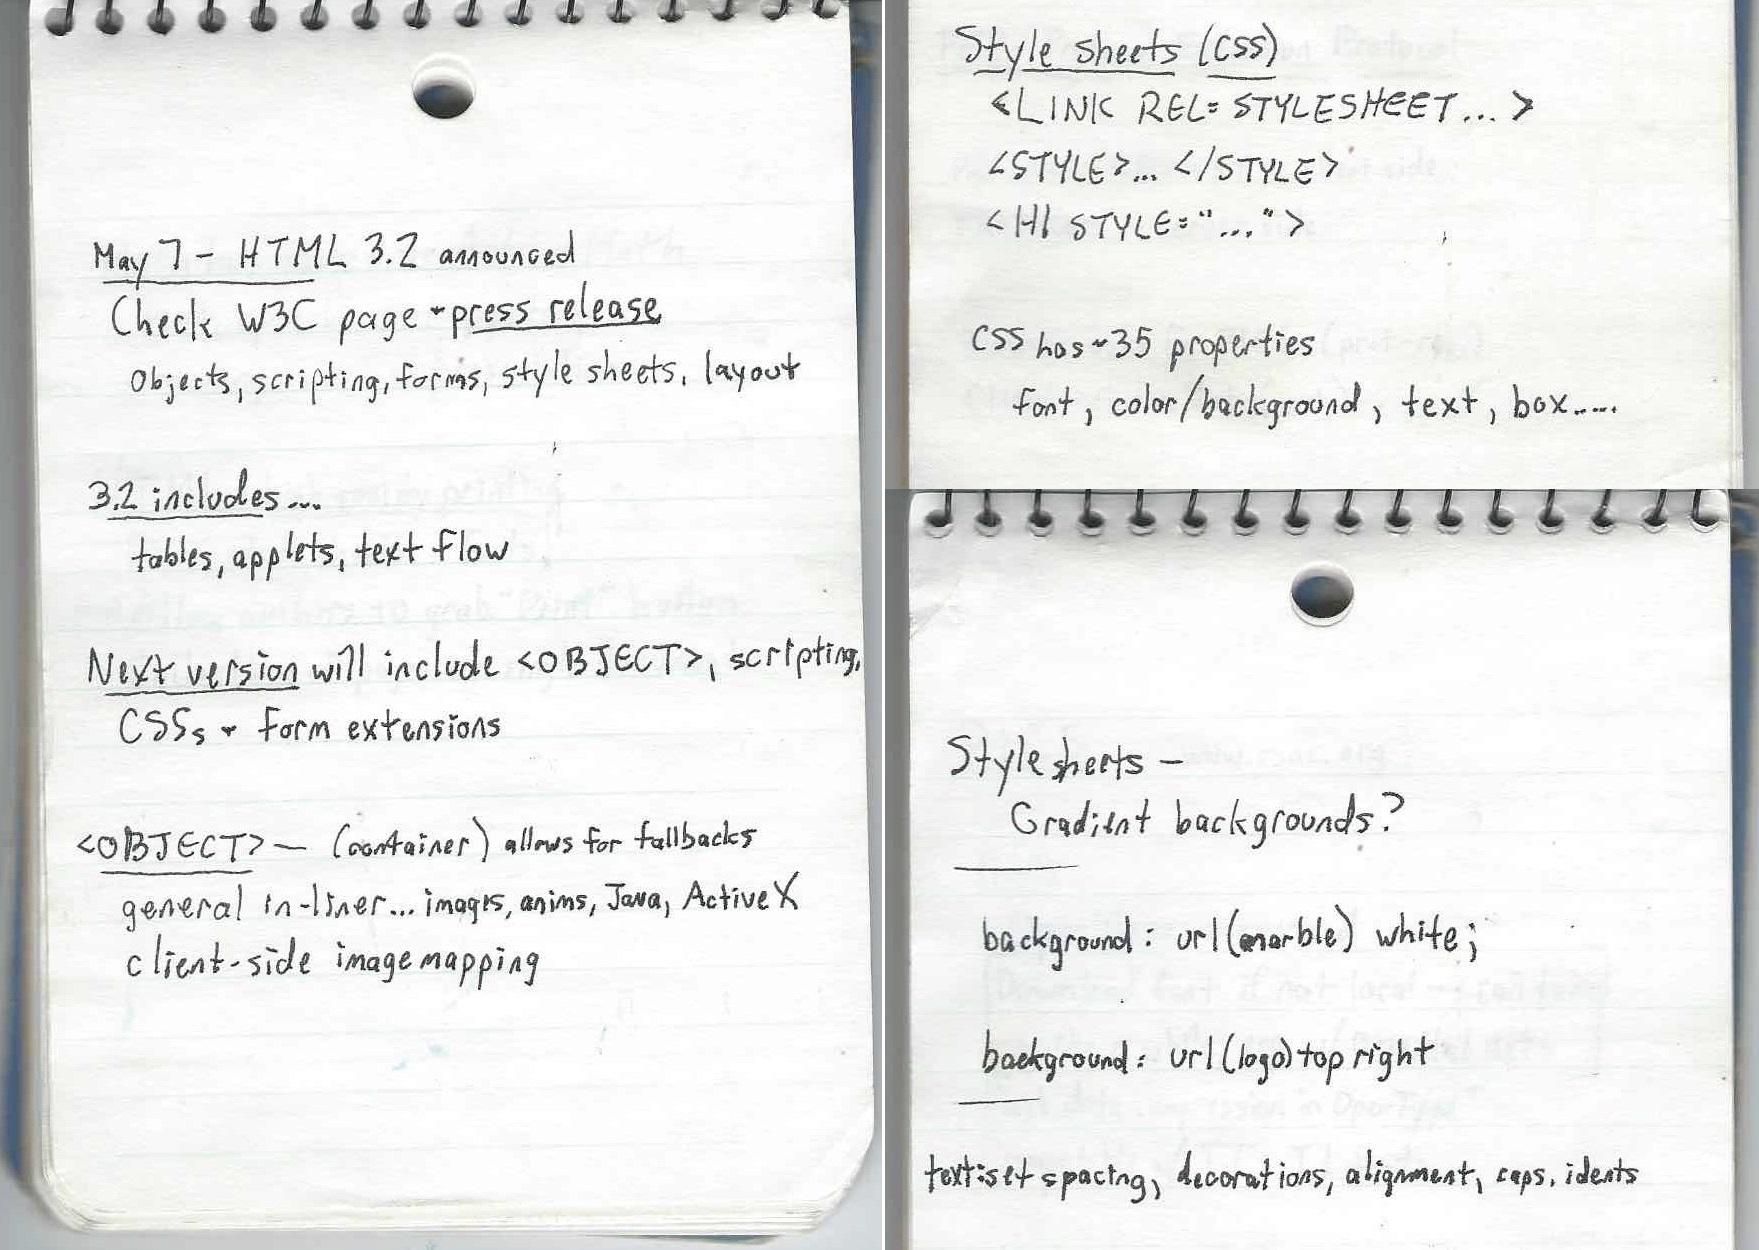 May 7 - HTML 3.2 announced
Check W3C page - press release
Objects, scripting, forms, style sheets, layout
3.2 includes...
tables, applets, text flow
Next version will include <OBJECT>, scripting,
CSSs + form extensions
<OBJECT> - (container) allows for fallbacks
general in-liner... images, anims, Java, ActiveX
client-side imagemapping
Style sheets (CSS)
<LINK REL=STYLESHEET...>
<STYLE>... </STYLE>
<H1 STYLE="...">
CSS has ~35 properties
font, color/background, text, box.....
Style sheets -
Gradient backgrounds?
background: url(marble) white;
background: url(logo) top right
text: set spacing, decorations, alignment, caps, idents